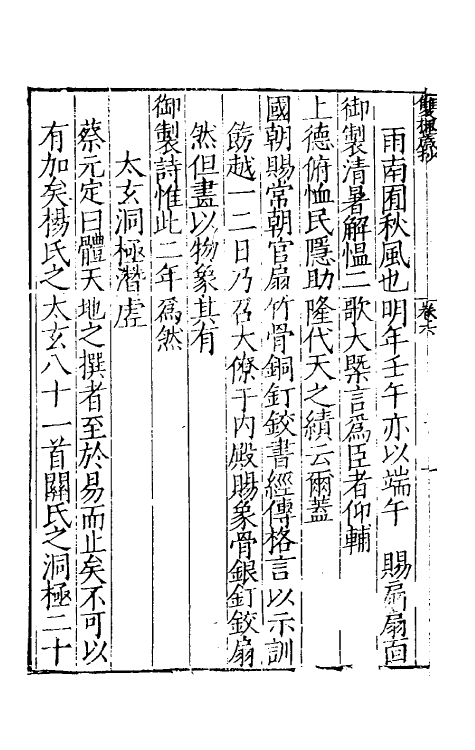 雨南囿秋風也明年壬午亦以端午　賜扇扇面
御製清暑解愠二歌大槩言爲臣者仰輔
上德俯恤民隱助隆代天之績云爾蓋
國朝賜常朝官扇竹骨銅釘鉸書經傳格言以示訓
飭越一二日乃召大僚于内殿賜象骨銀釘鉸扇
然但畫以物象其有
御製詩惟此二年爲然
太玄洞極潛虗
蔡元定曰體天地之撰者至於易而止矣不可以
有加矣楊氏之太玄八十一首關氏之洞極二十
卷六